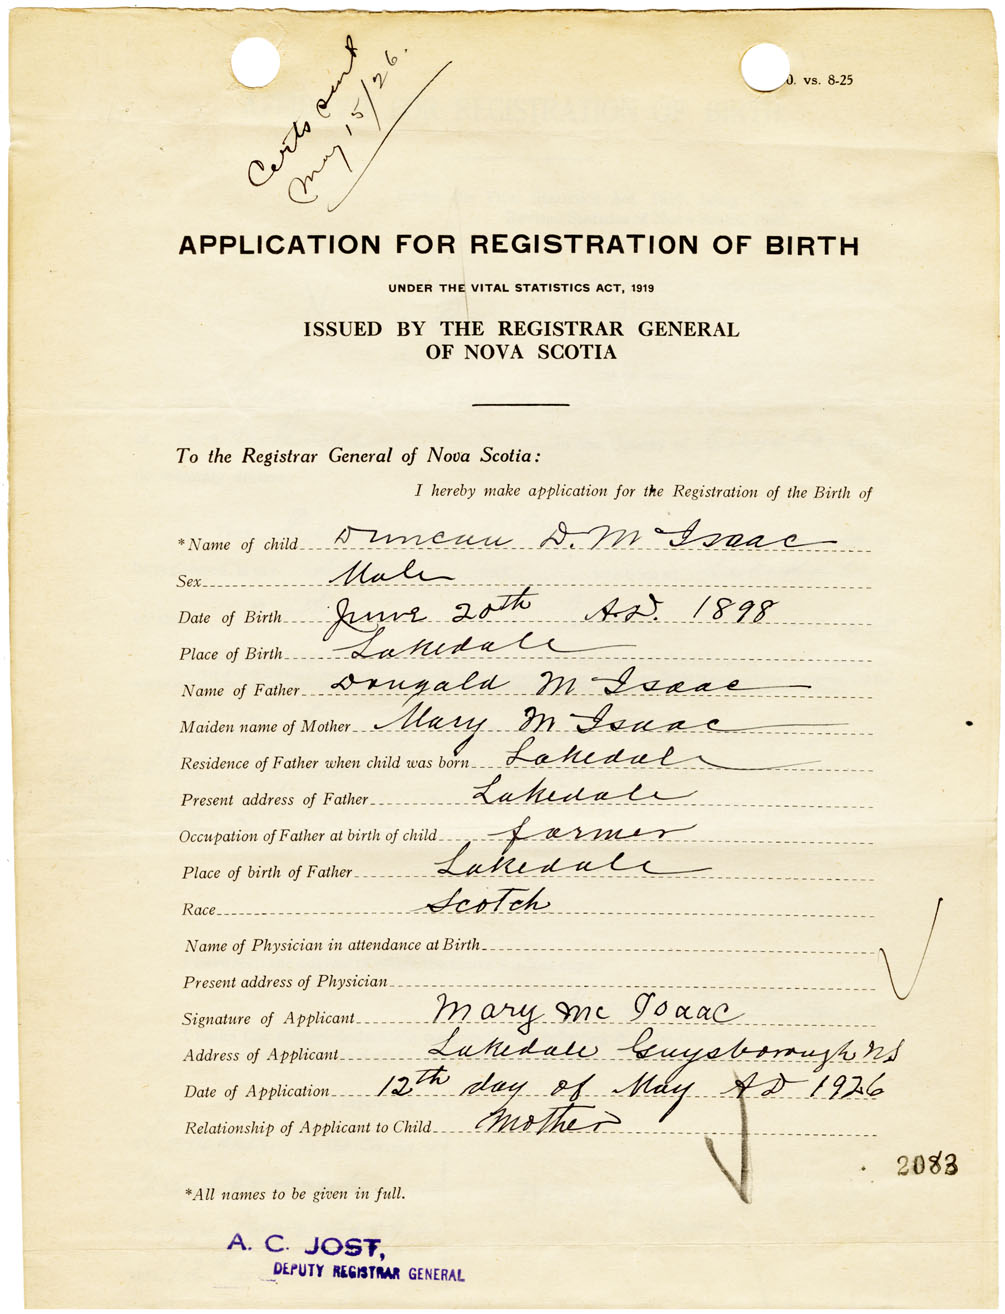 Certs sent
May 15/26.
0. vs. 8-25
APPLICATION FOR REGISTRATION OF BIRTH
UNDER THE VITAL STATISTICS ACT, 1919
ISSUED BY THE REGISTRAR GENERAL
OF NOVA SCOTIA
To the Registrar General of Nova Scotia:
I hereby make application for the Registration of the Birth of
*Name of child Duncan D. Mc Isaac
Sex Male
Date of Birth June 20th A.D. 1898
Place of Birth Lakedale
Name of Father Dougald Mc Isaac
Maiden name of Mother Mary Mc Isaac
Residence of Father when child was born Lakedale
Present address of Father Lakedale
Occupation of Father at birth of child farmer
Place of birth of Father Lakedale
Race Scotch
Name of Physician in attendance at Birth
Present address of Physician
Signature of Applicant Mary Mc Isaac
Address of Applicant Lakedale Guysborough NS
Date of Application 12th day of May AD 1926
Relationship of Applicant to Child Mother
2083
*All names to be given in full.
A. C. JOST,
DEPUTY REGISTRAR GENERAL